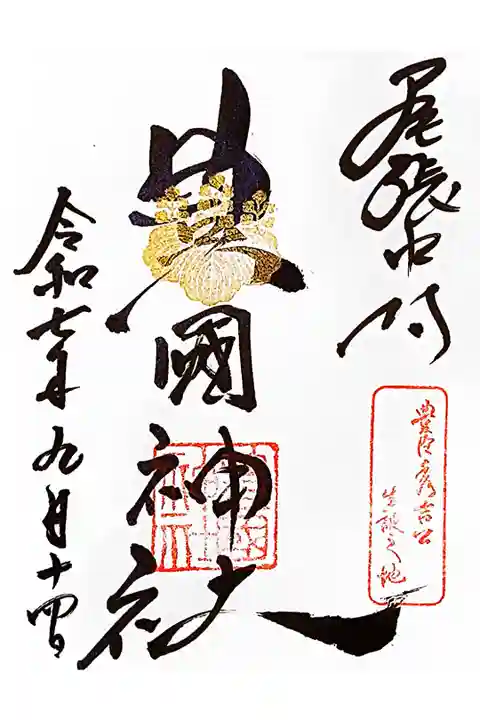 尾張中村
豊臣秀吉公
生誕之地
豊國神社
令和七年九月十四日